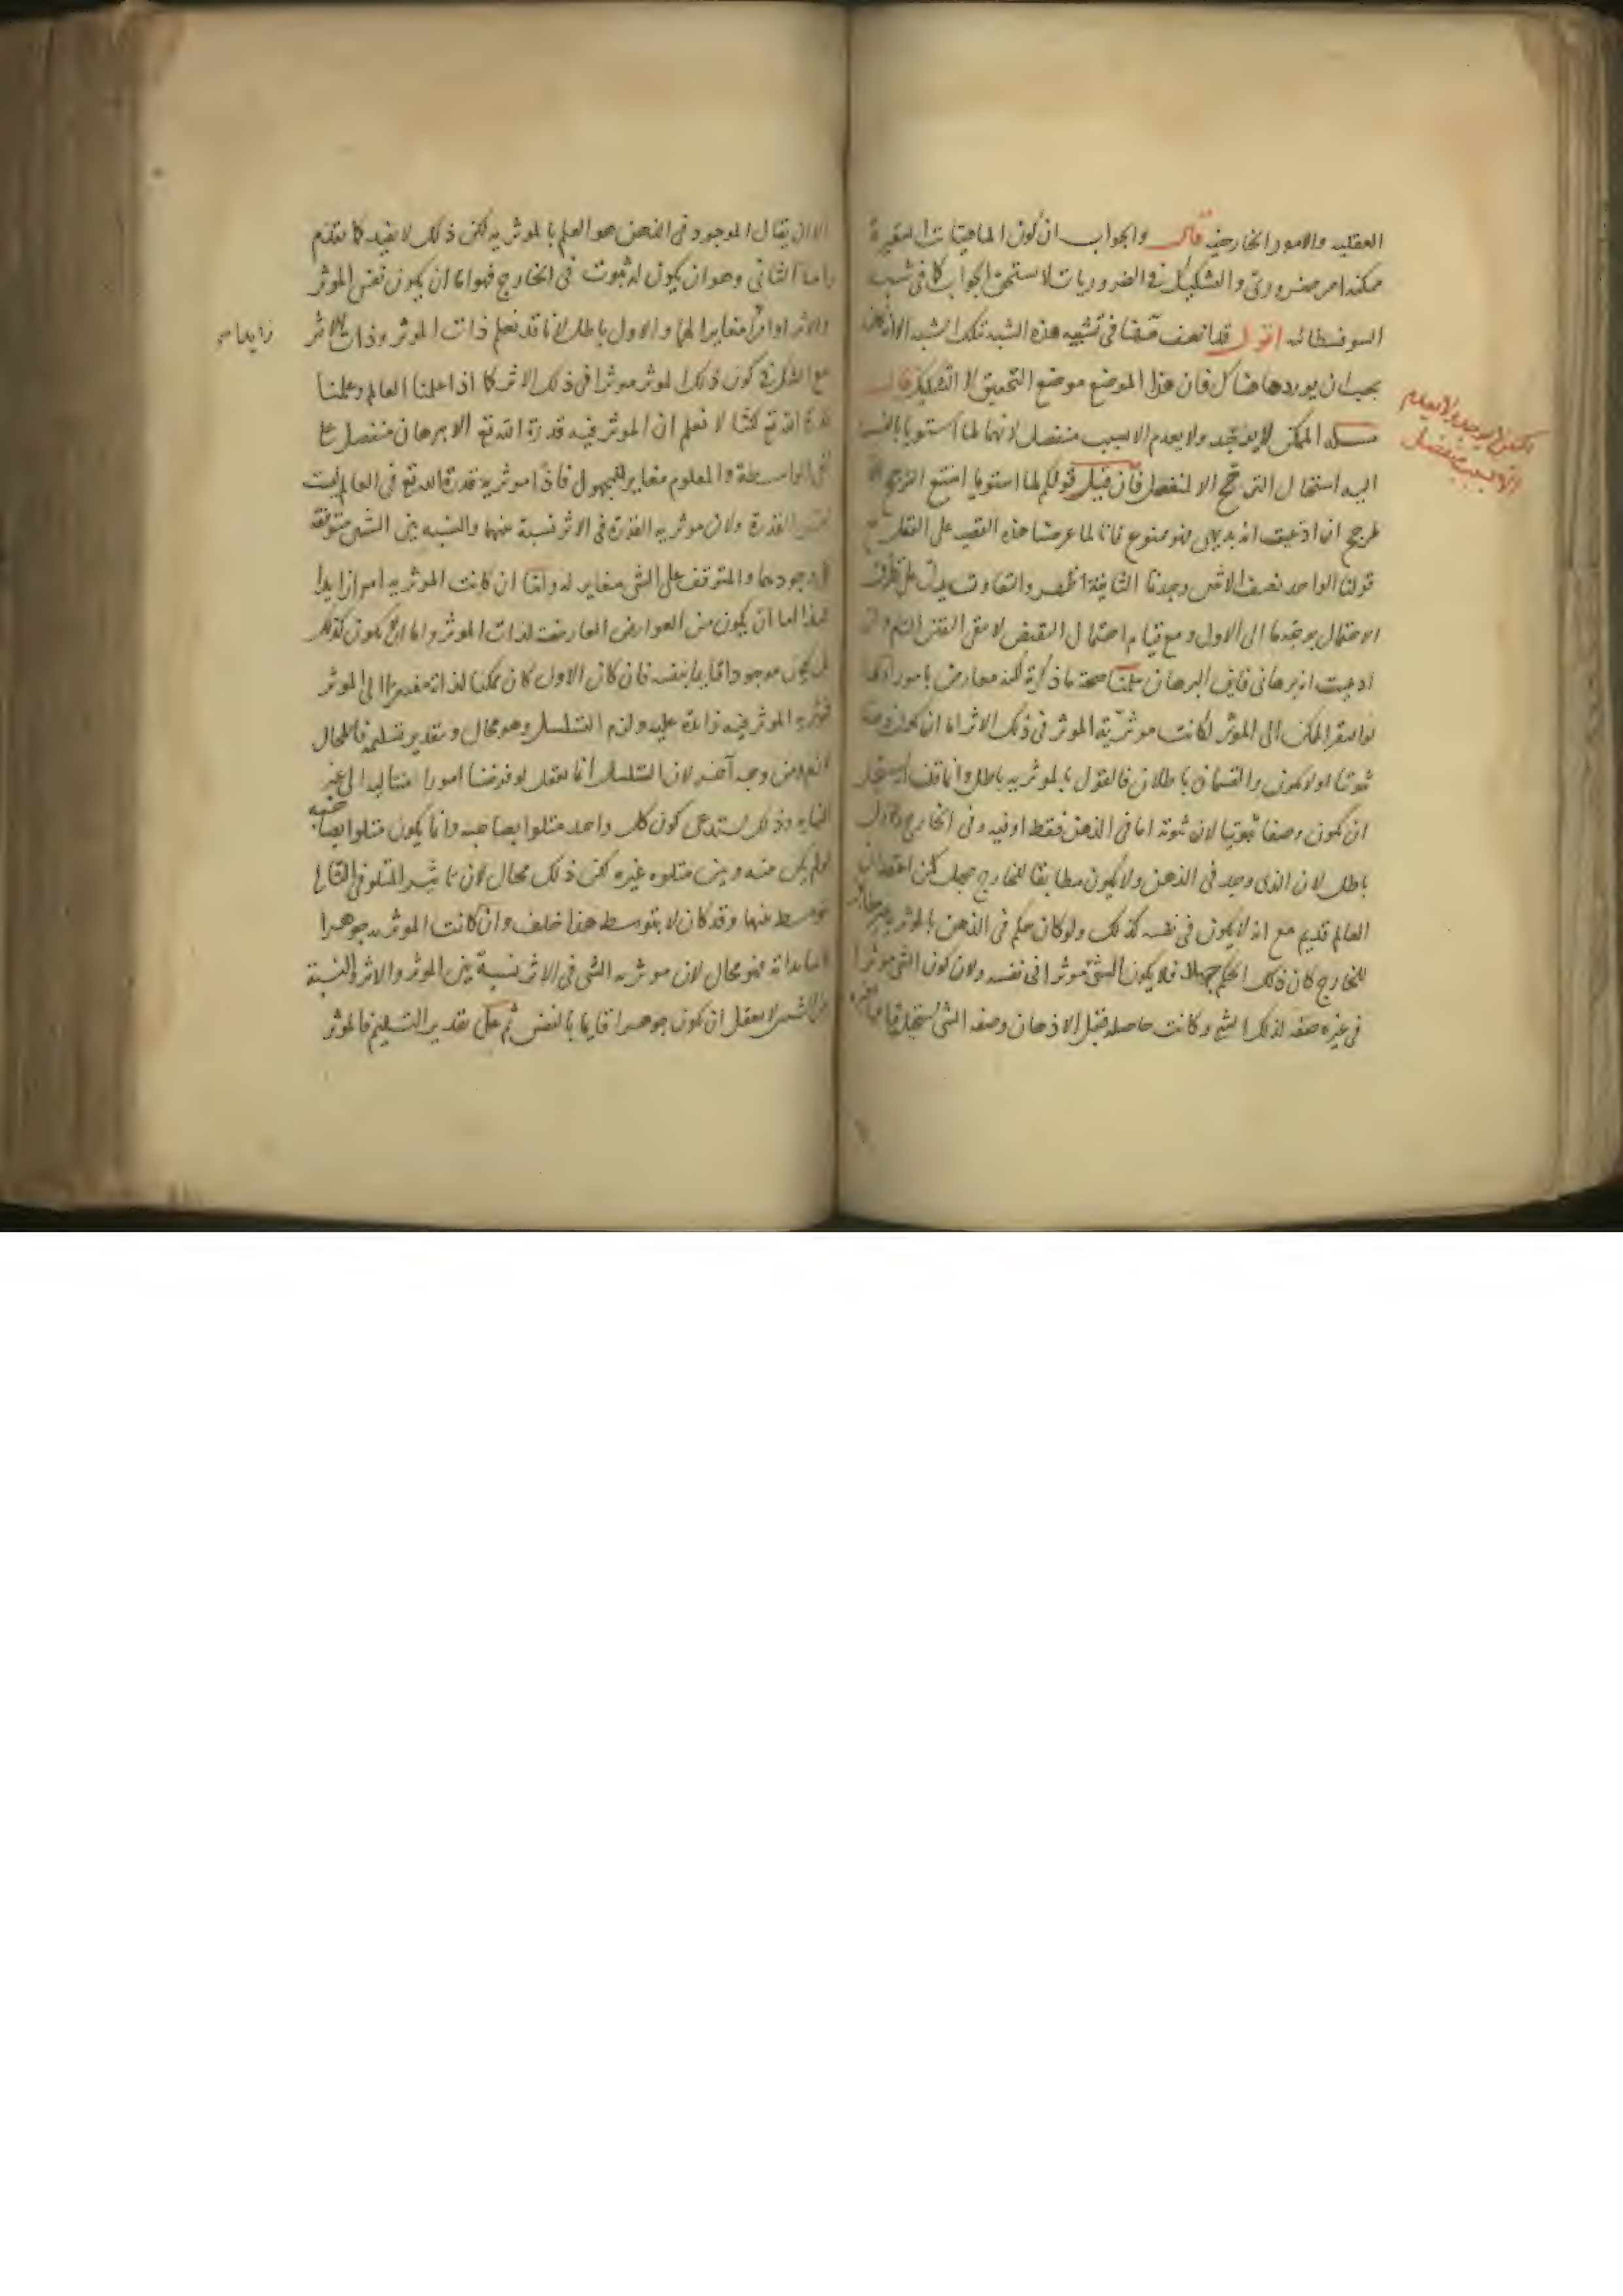 العقليه والامور الخارجيه قال والجواب ان كون الماهيات المتغيرة
ممكنة امر ضرورى والتشكيك فى الضروريات لا يستحق الجواب كما فى شبه
السوفسطائيه اقول قد انصف مصنفا فى تشبيه هذه الشبه بتلك الشبه الا انه كان
يجب ان يوردها هناك فان هذا الموضع موضع التحقيق لا التشكيك قال
مسئلة الممكن لا يوجد ولا يعدم الا بسبب منفصل لانهما لما استويا بالنسبة
اليه استحال الترجيح الا لمنفصل فان قيل قولكم لما استويا امتنع الترجيح الا
لمرجح ان ادعيت انه بديهى فهو ممنوع فانا لما عرضنا هذه القضيه على العقل مع
قولنا الواحد نصف الاثنين وجدنا الثانية اظهر والتفاوت يدل على تطرق
الاحتمال بوجه ما الى الاول ومع قيام احتمال النقيض لا يبقى اليقين التام وان
ادعيت انه برهانى فاين البرهان سلمنا صحة ما ذكرته لكنه معارض بامور اولها
لو افتقر الممكن الى المؤثر لكانت مؤثرية المؤثر فى ذلك الاثر اما ان يكون وصفا
ثبوتيا او لا يكون والقسمان باطلان فالقول بالموثريه باطل وانما قلنا انه يستحيل
ان يكون وصفا ثبوتيا لان ثبوته اما فى الذهن فقط او فيه وفى الخارج والاول
باطل لان الذى وجد فى الذهن ولا يكون مطابقا للخارج جهل كمن اعتقد ان
العالم قديم مع انه لا يكون فى نفسه كذلك ولو كان حكم فى الذهن بالموثريه غير مطابق
للخارج كان ذلك الحكم جهلا فلا يكون الشئ موثرا فى نفسه ولان كون الشئ موثرا
فى غيره صفه لذلك الشئ وكانت حاصله قبل الاذهان وصفه الشئ يستحيل قيامها بغيره
الممكن لا يوجد ولا يعدم
الا بسبب منفصل
الا ان يقال الموجود فى الذهن هو العلم بالموثريه لكن ذلك لا يفيد كما تقدم
واما الثانى وهو ان يكون له ثبوت فى الخارج فهو اما ان يكون نفس الموثر
والاثر او امرا مغايرا لهما والاول باطل لانا قد نعلم ذات الموثر وذات الاثر
مع الشك فى كون ذلك الموثر موثرا فى ذلك الاثر كما اذا علمنا العالم وعلمنا
قدرة الله تع لكنا لا نعلم ان الموثر فيه قدرة الله تع الا ببرهان منفصل على
نفى الواسطة والمعلوم مغاير للمجهول فاذا موثرية قدرة الله تع فى العالم ليست
نفس القدرة ولان موثريه القدرة فى الاثر نسبة بينهما والنسبه بين الشيئين متوقفة
على وجودهما والمتوقف على الشئ مغاير له واما ان كانت الموثريه امرا زايدا
فهذا اما ان يكون من العوارض العارضة لذات الموثر واما ان لا يكون كذلك
بل يكون موجودا قايما بنفسه فان كان الاول كان ممكنا لذاته مفتقرا الى الموثر
فموثريه الموثر فيه زايدة عليه ولزم التسلسل وهو محال وبتقدير تسليمه فالمحال
لازم من وجه آخر لان التسلسل انما يعقل لو فرضنا امورا متتاليه الى غير
النهايه وذلك يستدعى كون كل واحد متلوا بصاحبه وانما يكون متلوا بصاحبه
لو لم يكن بينه وبين متلوه غيره لكن ذلك محال لان تاثير المتلو فى التالى
متوسط بينهما وقد كان لا متوسط هذا خلف وان كانت الموثريه جوهرا
قايما بذاته فهو محال لان موثريه الشئ فى الاثر نسبة بين الموثر والاثر والنسبة
بين الشيئين لا يعقل ان تكون جوهرا قايما بالنفس ثم على تقدير التسليم فالموثر
زايدا